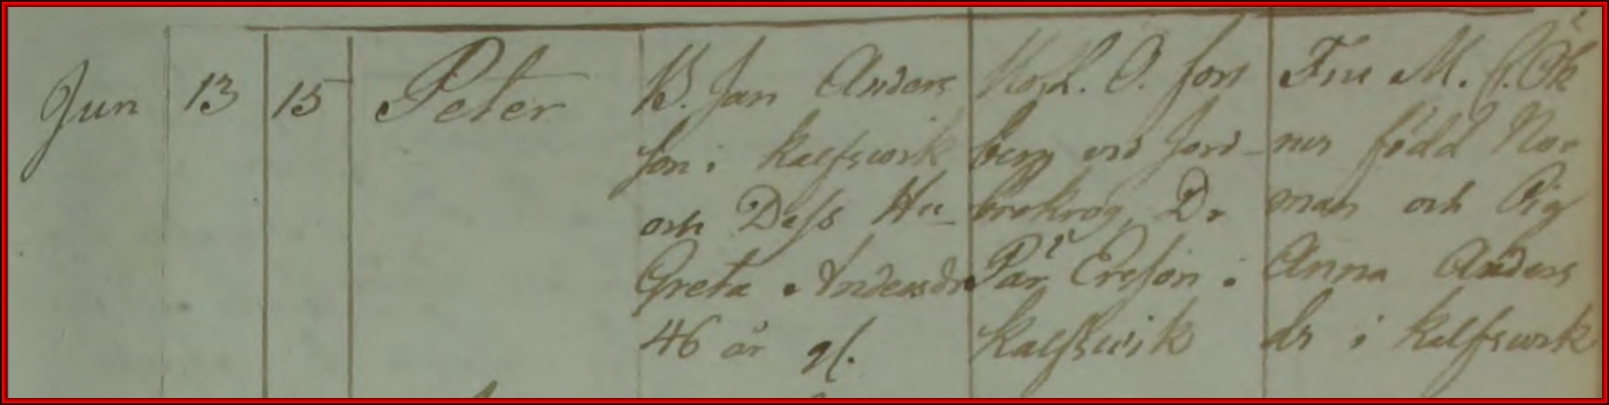 Jun 13 15 Peter B. Jan Anders Fru M. C. Ök
son i Kalfswik berg wid Jord ner född Nor
och Dess Hu Dr man och Pig
Greta Andersdr Pär Ersson i Anna Anders
46 år gl. Kalfswik dr i Kalfswik